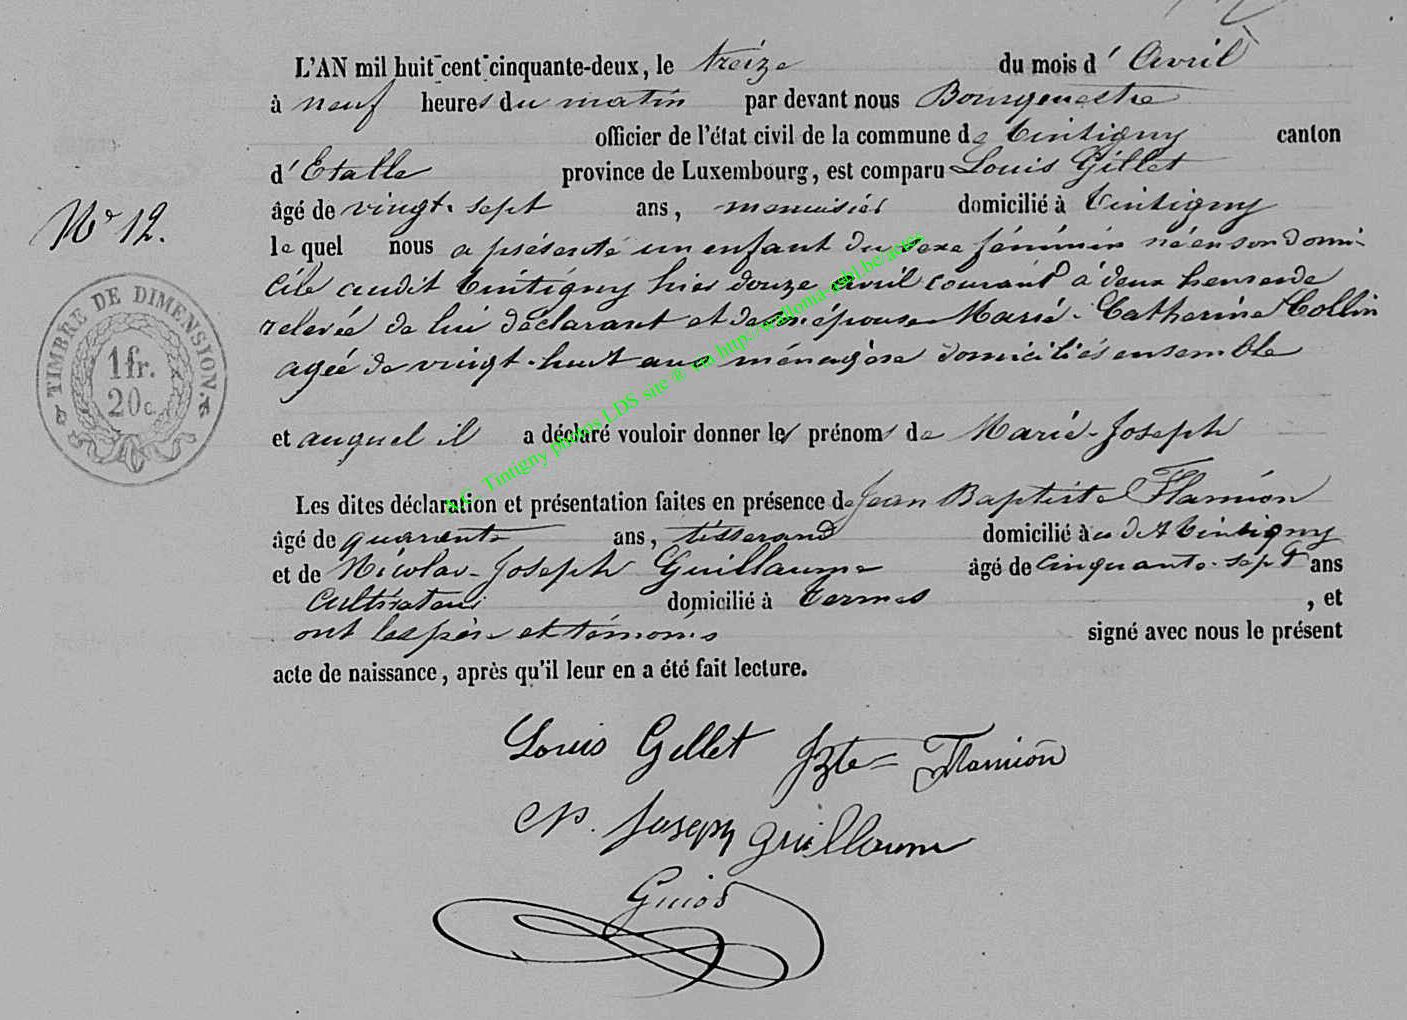 L'AN mil huit cent cinquante-deux, le treize du mois d'Avril
à neuf heures du matin par devant nous Bourgmestre
officier de l'état civil de la commune de Tintigny canton
d'Etalle province de Luxembourg, est comparu Louis Gillet
âgé de vingt-sept ans, menuisier domicilié à Tintigny
N° 12.
lequel nous a présenté un enfant du sexe féminin né en son domi-
cile audit Tintigny hier douze avril courant à deux heures de
relevée de lui déclarant et de son épouse Marie-Catherine Collin
agée de vingt-huit ans ménagère domiciliés ensemble
TIMBRE DE DIMENSION.
1 fr.
20 c.
et auquel il a déclaré vouloir donner les prénoms de Marie-Joseph
A.C. Tintigny photos LDS site ® via http://wallonia-asbl.be/actes
Les dites déclaration et présentation faites en présence de Jean Baptiste Flamion
âgé de quarante ans, tisserand domicilié à Tintigny
et de Nicolas-Joseph Guillaume âgé de cinquante-sept ans
cultivateur domicilié à Termes, et
ont les père et témoins signé avec nous le présent
acte de naissance, après qu'il leur en a été fait lecture.
Louis Gillet JBte Flamion
N. Joseph guillaume